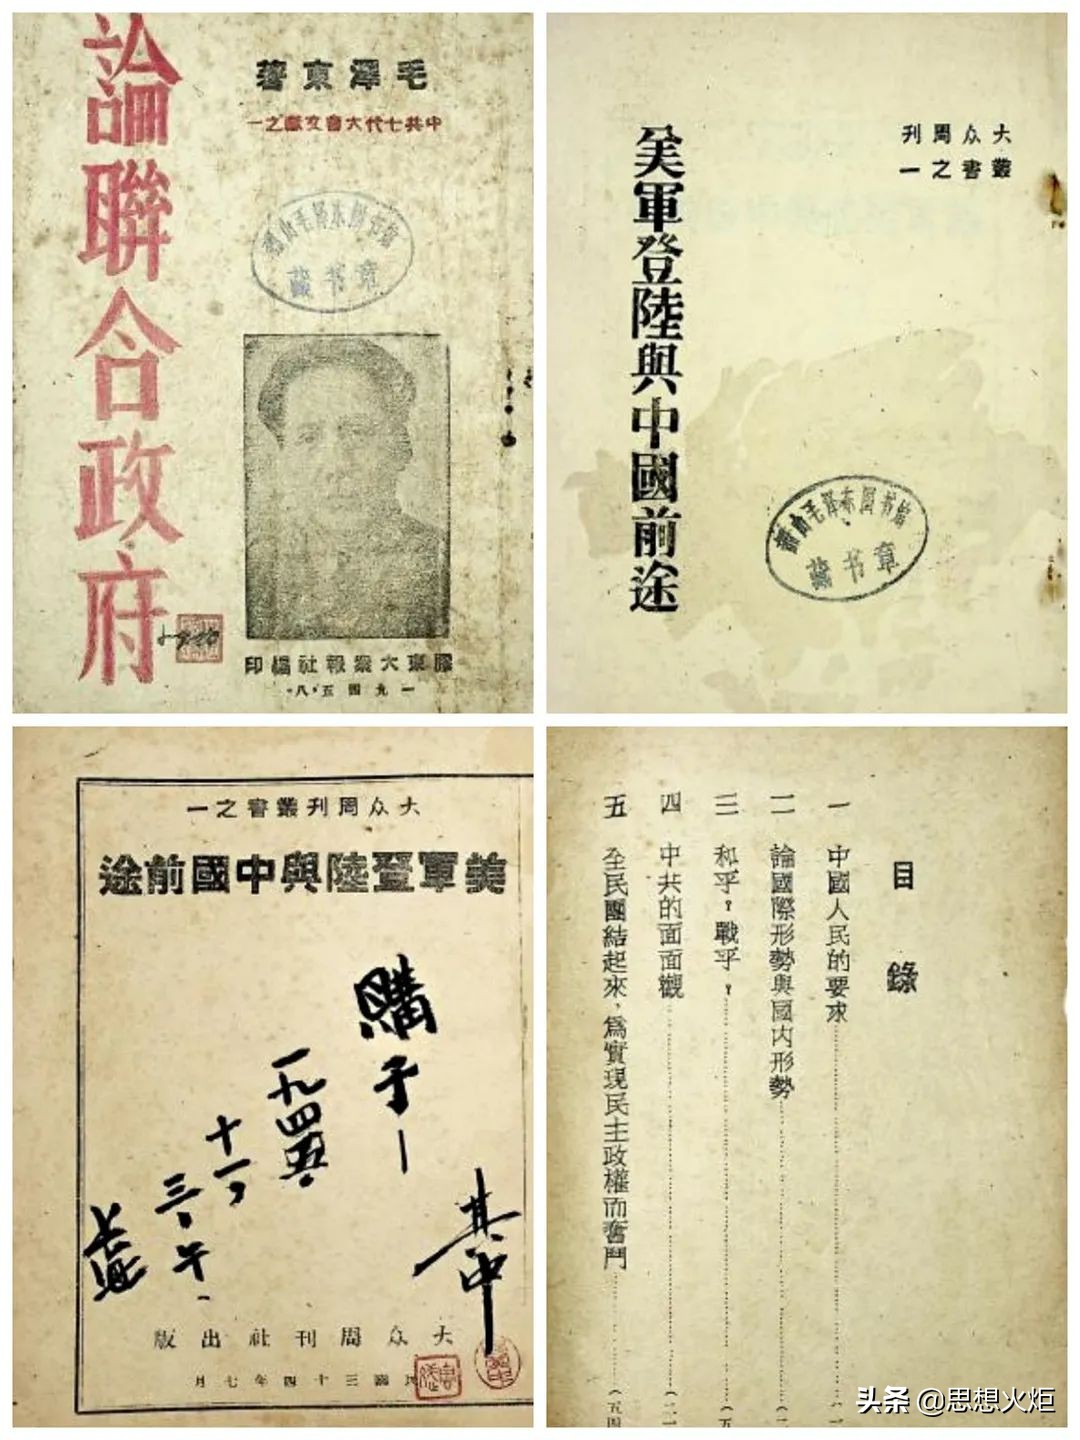 論聯合政府
毛澤東著
中共七代大會文獻之一
韶山毛泽东图书馆
藏书章
膠東大衆報社編印
一九四五·八·
大众周刊
叢書之一
美軍登陸與中國前途
韶山毛泽东图书馆
藏书章
大众周刊叢書之一
美軍登陸與中國前途
購于一
一九四五.
十一,
三.午
其中
大众周刊社出版
民國三十四年七月
目錄
一 中國人民的要求……(一
二 論國際形勢與國内形勢……(二
三 和乎?戰乎?……(五
四 中共的面面觀……(二一
五 全民團結起來,為實現民主政權而奮鬥……(五四
头条 @思想火炬